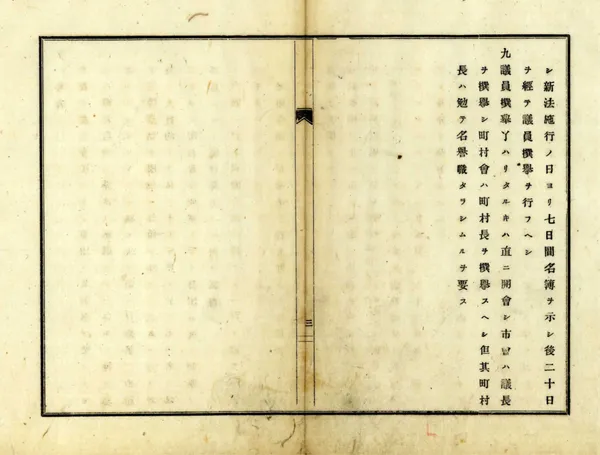 シ新法施行ノ日ヨリ七日間名簿ヲ示シ後二十日
ヲ經テ議員撰擧ヲ行フヘシ
九議員撰擧了ハリタルキハ直ニ開會シ市會ハ議長
ヲ撰擧シ町村會ハ町村長ヲ撰擧スヘシ但其町村
長ハ勉テ名譽職タラシムルヲ要ス
三